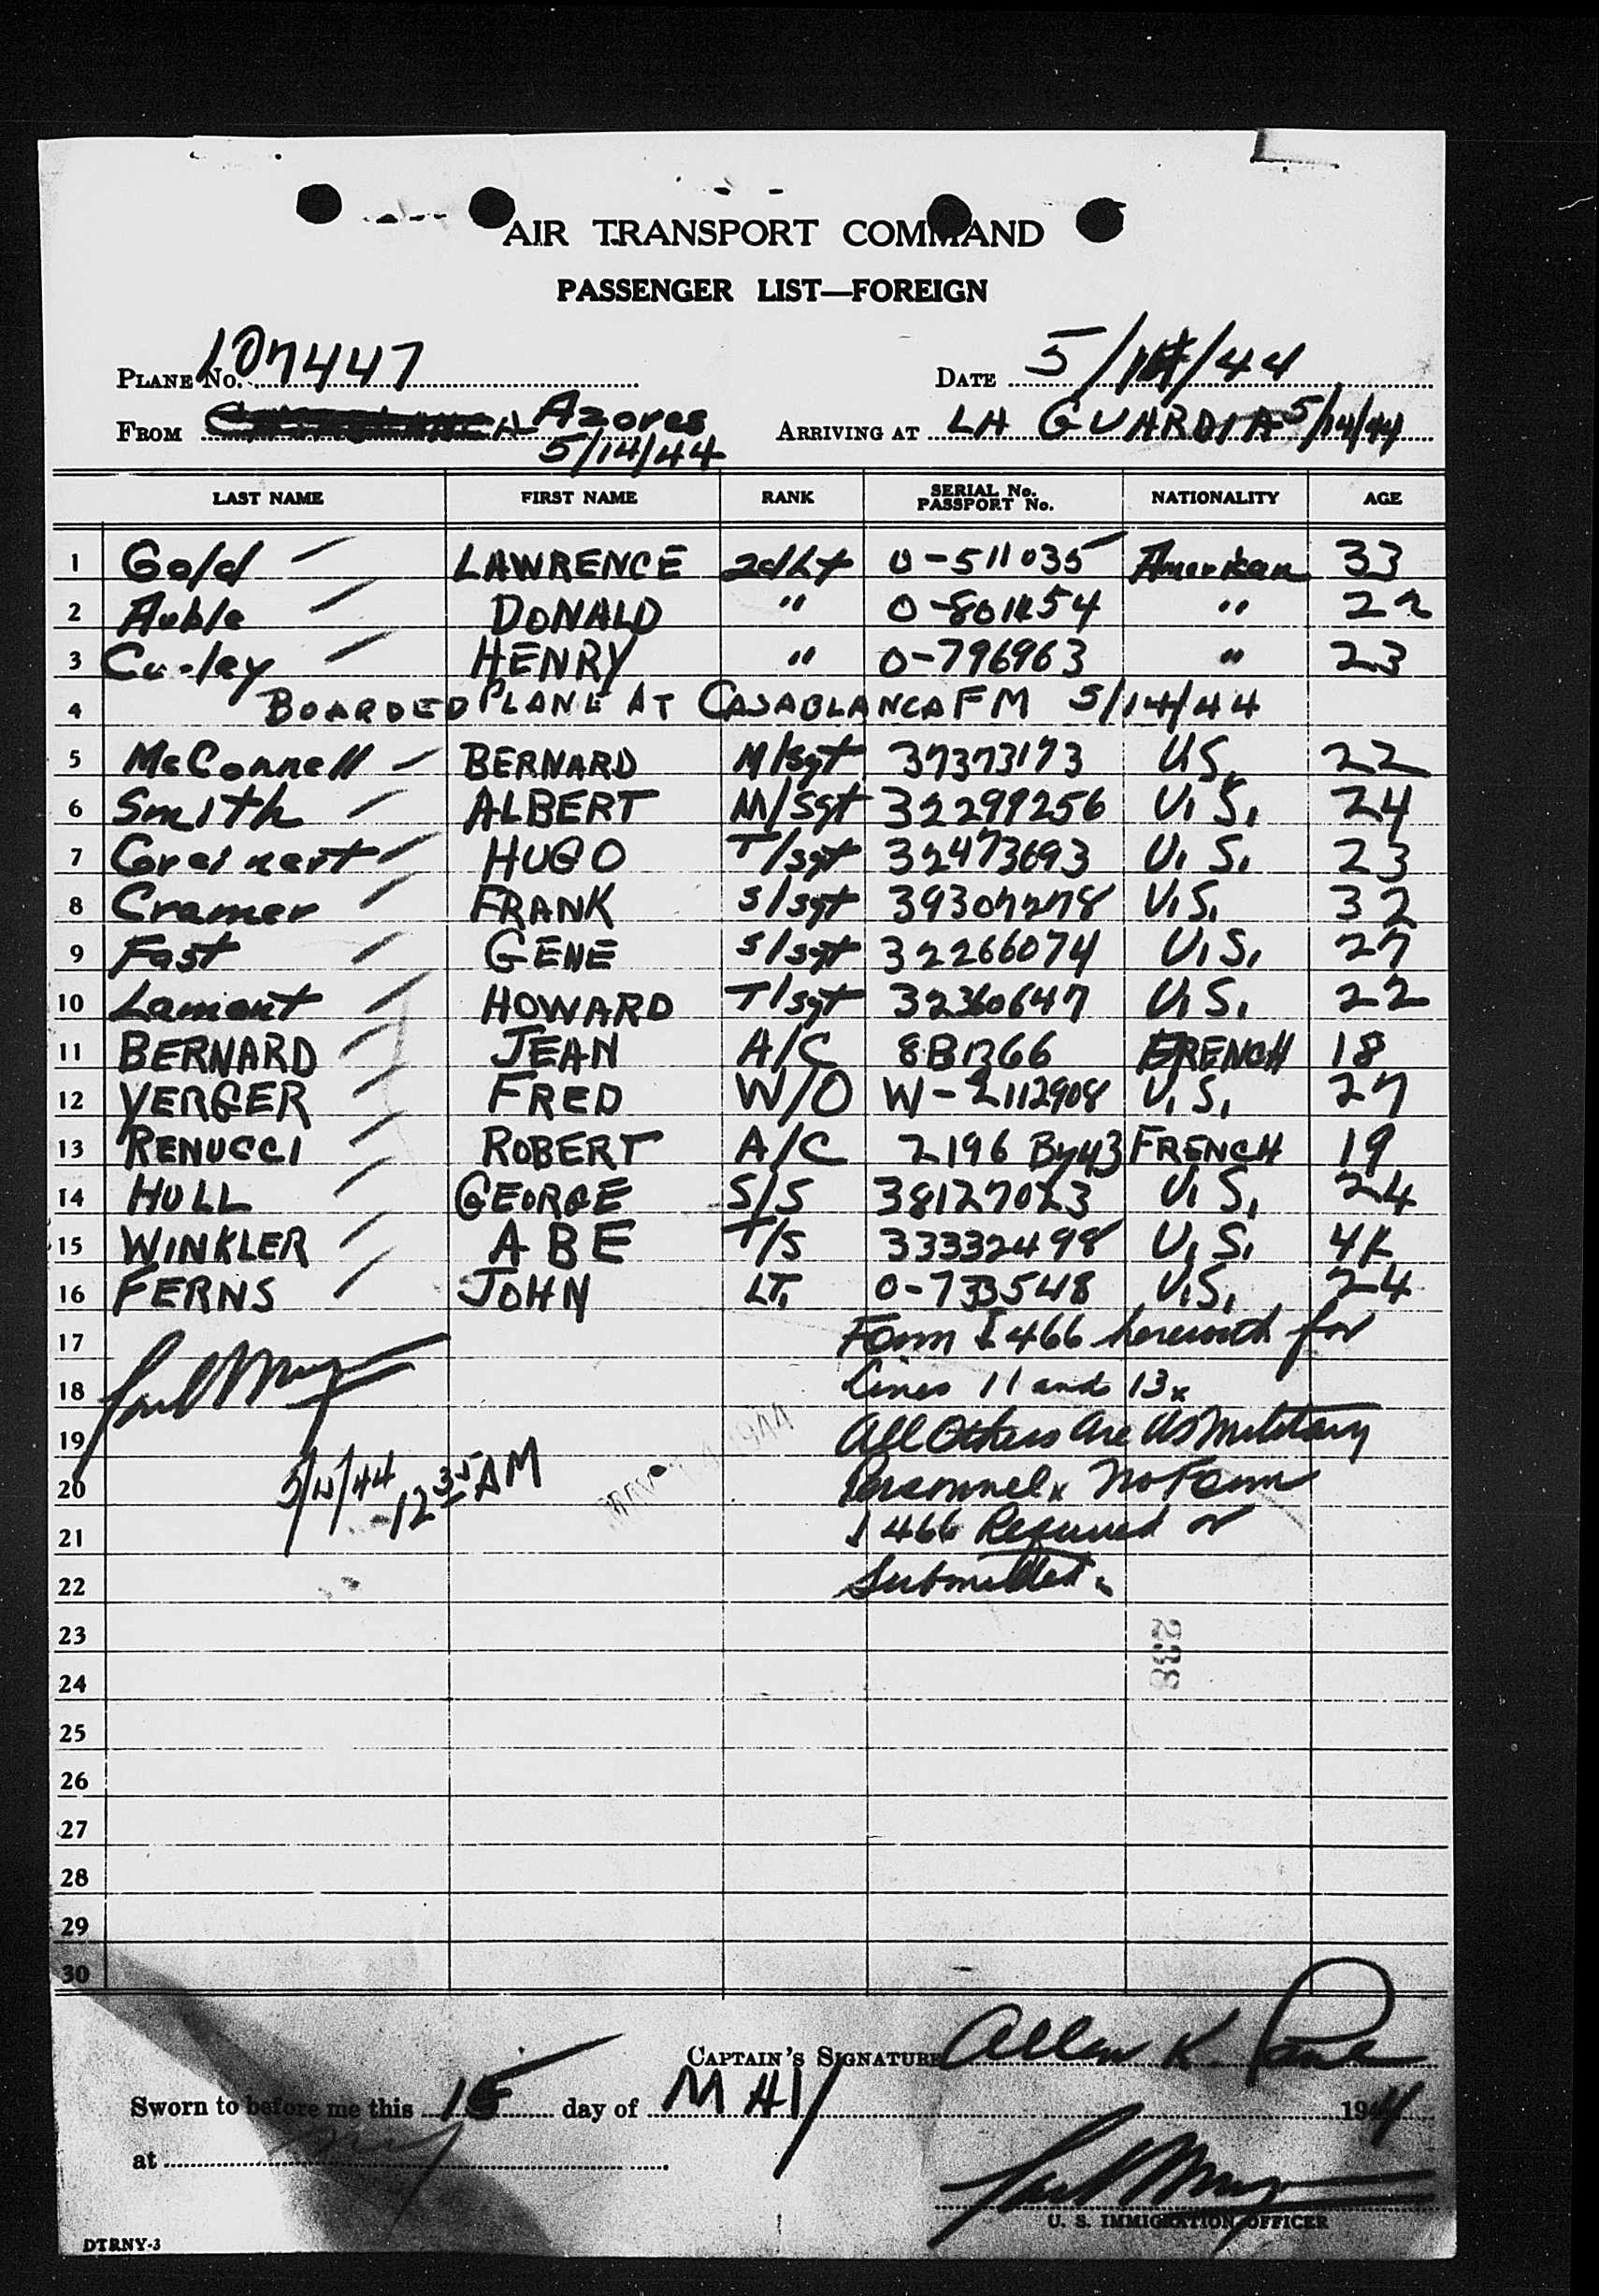 AIR TRANSPORT COMMAND
PASSENGER LIST—FOREIGN
PLANE No. 107447 DATE 5/14/44
FROM Azores ARRIVING AT LA GUARDIA 5/14/44
5/14/44
LAST NAME FIRST NAME RANK SERIAL No. PASSPORT No. NATIONALITY AGE
1 Gold LAWRENCE 2d Lt 0-511035 American 33
2 Auble DONALD " " 22
3 HENRY " 0-796963 " 23
4 BOARDED PLANE AT CASABLANCA FM 5/14/44
5 McConnell BERNARD M/Sgt 37373173 U.S. 22
6 Smith ALBERT M/Sgt 32299256 U.S. 24
7 Greinert HUGO T/sgt 32473693 U.S. 23
8 Cramer FRANK S/sgt 39307278 U.S. 32
9 Fast GENE S/sgt 32266074 U.S. 27
10 Lamont HOWARD T/sgt 32360647 U.S. 22
11 BERNARD JEAN A/C FRENCH 18
12 VERGER FRED W/O W-2112908 U.S. 27
13 RENUCCI ROBERT A/C 2196 By43 FRENCH 19
14 HULL GEORGE S/S 38127023 U.S. 24
15 WINKLER ABE T/S 33332498 U.S.
16 FERNS JOHN LT. 0-733548 U.S. 24
17 Form I 466 herewith for
18 Lines 11 and 13x
19 All Others are US Military
20 5/14/44 12 35 AM MAY 14 1944 Personnel x No Form
21 I 466 Required or
22 Submitted.
23
238
24
25
26
27
28
29
30
CAPTAIN'S SIGNATURE Allen K.
Sworn to before me this 15 day of MAY 1944
at
U. S. IMMIGRATION OFFICER
DTRNY-3